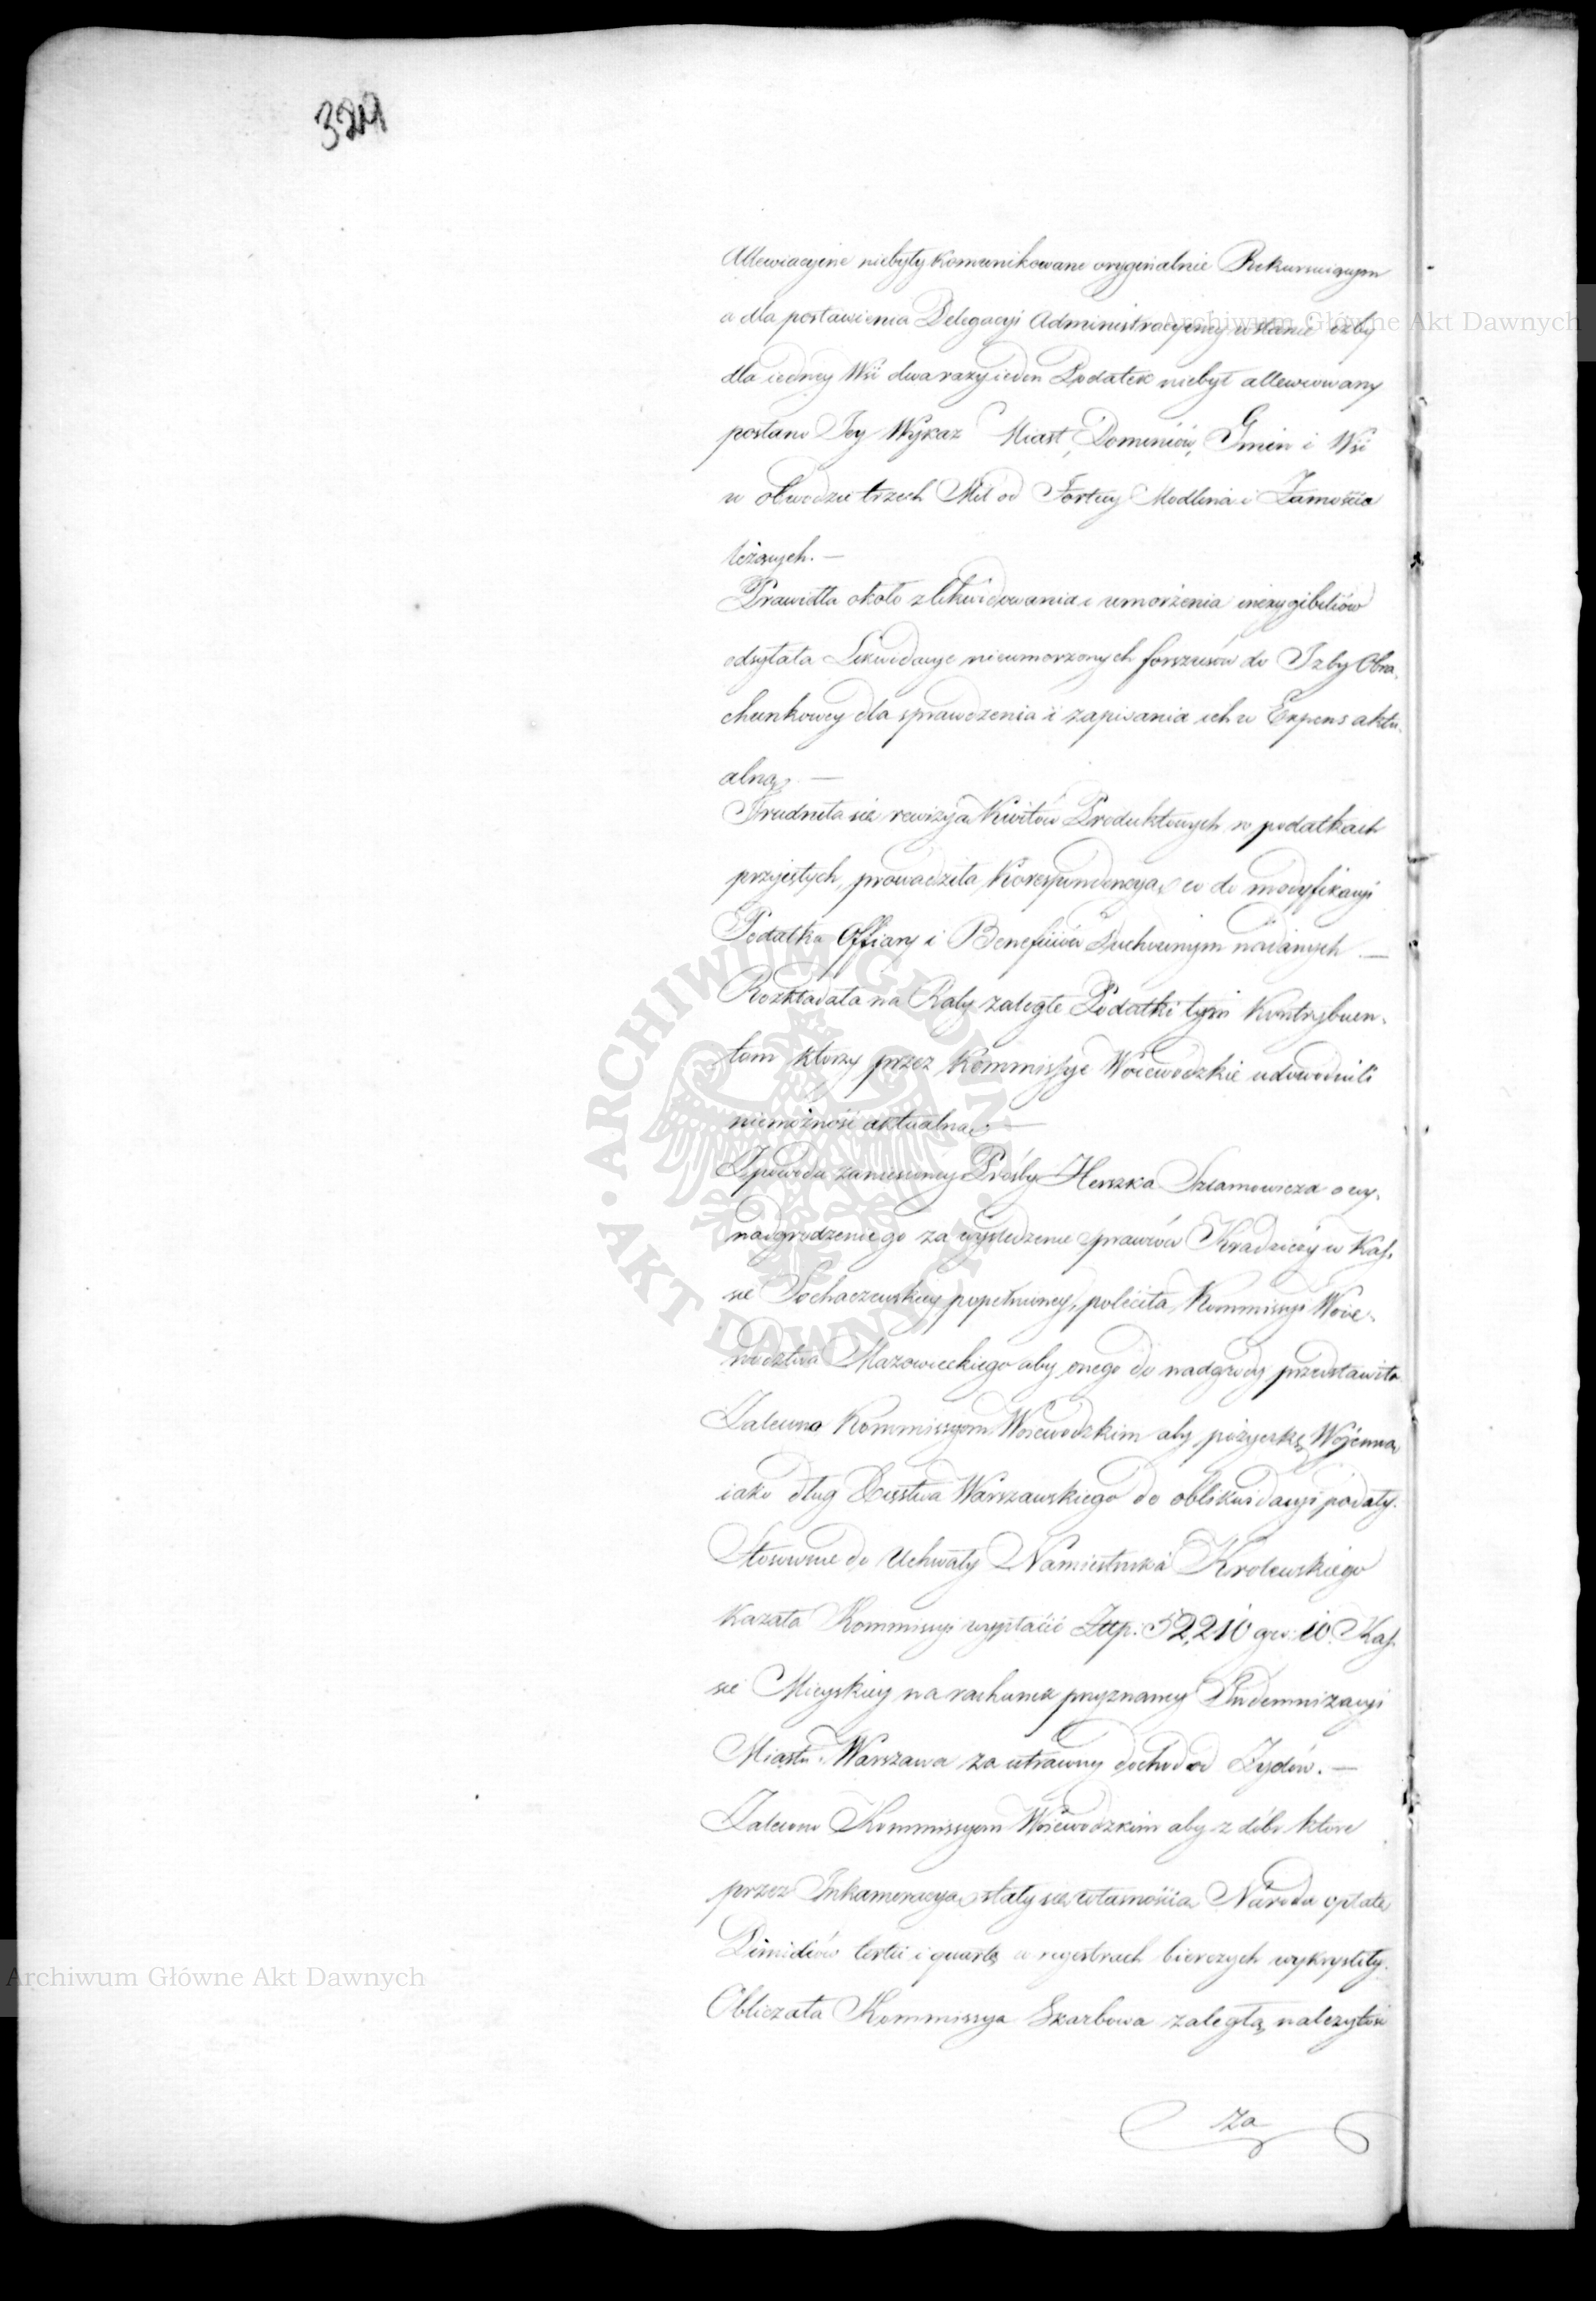 Allewiacyine niebyły kommunikowane oryginalnie Rekurruiącym
a dla postawienia Delegacyi Administracyiney w stanie izby
dla iedney Wsi dwa razy ieden Podatek niebył allewiowany
posłano Jey Wykaz Miast, Dominiów, Gmin i Wsi
w obwodzie trzech Mil od Fortecy Modlina i Zamościa
leżących. —
Prawidła około zlikwidowania i umorżenia inexygibiliów
odsyłała Likwidacye nieumorzonych forszusów do Izby Obra-
chunkowey dla sprawdzenia i zapisania ich w Expens aktu-
alną. —
Trudniła się rewizyą Kwitów Produktowych w podatkach
przyiętych, prowadziła Korespondencyą co do modyfikacyi
Podatku Offiary i Beneficiów Duchownym nadanych. —
Rozkładała na Raty zaległe Podatki tym Kontrybuen-
tom którzy przez Kommissye Woiewódzkie udowodnili
niemożność aktualną. —
Z powodu zaniesioney Prośby Herszka Szlamowicza o wy-
nadgrodzenie go za wyśledzenie sprawców Kradzieży w Kas-
sie Sochaczewskiey popełnioney, poleciła Kommissyi Woie-
wództwa Mazowieckiego aby onego do nadgrody przedstawiła
Zalecono Kommissyom Woiewódzkim aby pożyczkę Woienną
iako dług Xięstwa Warszawskiego do oblikwidacyi podały.
Stosownie do Uchwały Namiestnika Krolewskiego
Kazała Kommissyi wypłacić Złłp. 52,210 gr. 10. Kas-
sie Mieyskiey na rachunek przyznaney Indemnizacyi
Miastu Warszawa za utracony dochód od Żydów. —
Zalecono Kommissyom Woiewódzkim aby z dóbr które
przez Inkameracyą stały się własnością Narodu opłatę
Dimidiów tertii i quartę w regestrach bierczych wykryśliły.
Obliczała Kommissya Skarbowa zaległą należytość
za
Archiwum Główne Akt Dawnych
ARCHIWUM GŁÓWNE AKT DAWNYCH
Archiwum Główne Akt Dawnych